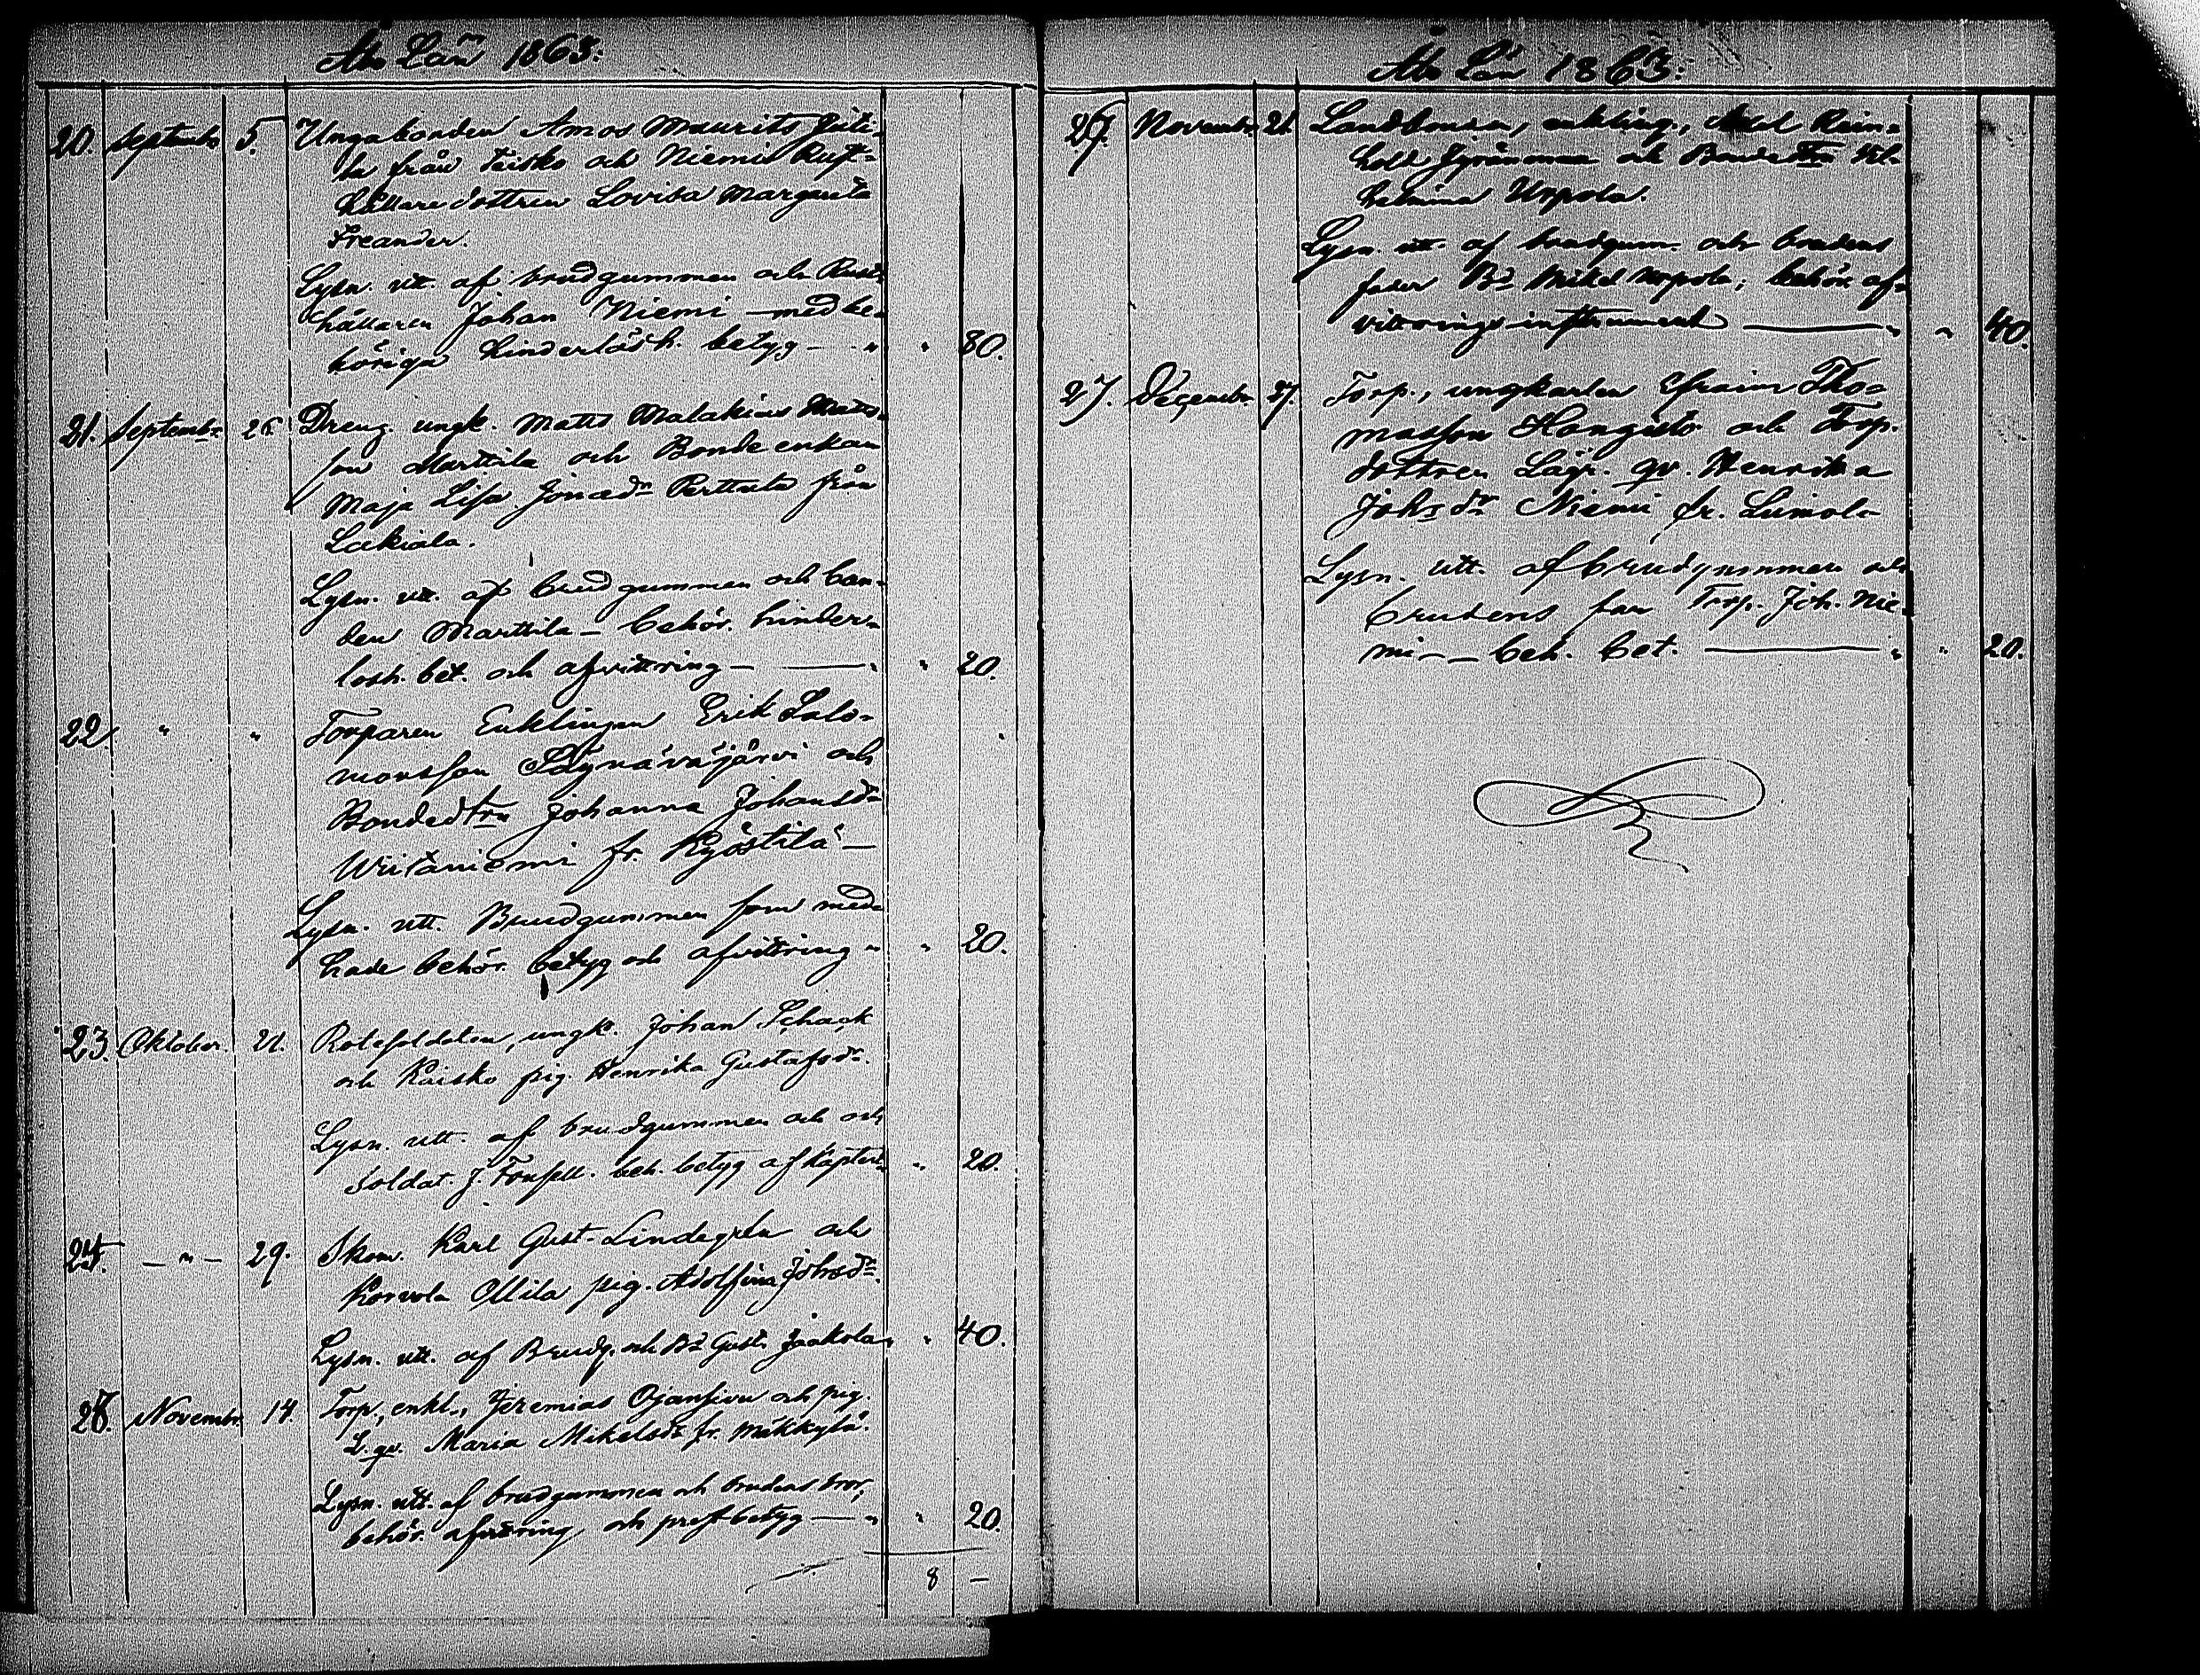 Åbo Län 1863.
20. Septemb. 5. Unga bonden Amos Maurits
från Teisko och Niemis Rust-
hållare dottren Lovisa Margareta
Freander.
Lysn. utt. af brudgummen och Rust-
hållaren Johan Niemi — med be-
höriga hinderlösh. betyg — " " 80.
21. Septembr. 26. Dreng. ungk. Matts Malakias Matts-
son Marttila och Bonde enkan
Maja Lisa Jonædr Perttula från
Lakiala.
Lysn. utt. af brudgummen och bon-
den Marttila — behör. hinder-
lösh. bet. och afvittring — — " " 20.
22. " " Torparen Enklingen Erik Salo-
monsson Säynäväjärvi och
Bondedtrn Johanna Johansdr
Wiitaniemi fr. Kyöstilä —
Lysn. utt. Brudgummen som med-
hade behör. betyg och afvittring " " 20.
23. Oktober. 21. Rotesoldaten, ungk. Johan Schack
och Kaisko pig. Henrika Gustafsdr.
Lysn. utt. af brudgummen och och
Soldat. J. beh. betyg af Kapten " 20.
24. — " — 29. Skom. Karl Gust. Lindegren och
Korvola Ollila pig. Adolfina Johsdr.
Lysn. utt. af Brudg. och Bd Gust. Jaakola " " 40.
25. Novembr 14. Torp., enkl., Jeremias Ojansivu och pig.
L. qv. Maria Mikelsdr fr. Mikkylä.
Lysn. utt. af brudgummen och brudens bror,
behör. afvittring, och prestbetyg — " " 20.
8 —
Åbo Län 1863.
26. Novembr. 21. Landbonden, enkling, Axel Rein-
hold och Bondedtrn Vil-
helmina Uopola.
Lysn. utt. af brudgum. och brudens
fader Bd Mikel Uopola; behör. af-
vittrings instrument — " " 40.
27. Decembr. 27. Torp., ungkarlen Efraim Tho-
masson Hangisto och Torp.
dottren Lägr. qv. Henrika
Johs dr Niemi fr. Luimola
Lysn. utt. af brudgummen och
brudens far Torp. Joh. Nie-
mi — beh. bet. — " " 20.